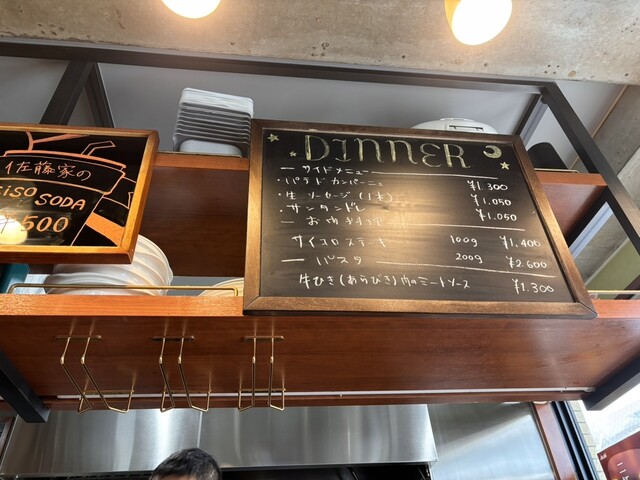 佐藤家の
SISO SODA
¥500
DINNER
ー サイドメニュー
・パテドカンパーニュ ¥1.300
・生ソーセージ(1本) ¥1.050
・サンダドレ ¥1.050
ー お肉
サイコロステーキ 100g ¥1.400
200g ¥2.600
ー パスタ
牛ひき(あらびき)肉のミートソース ¥1.300